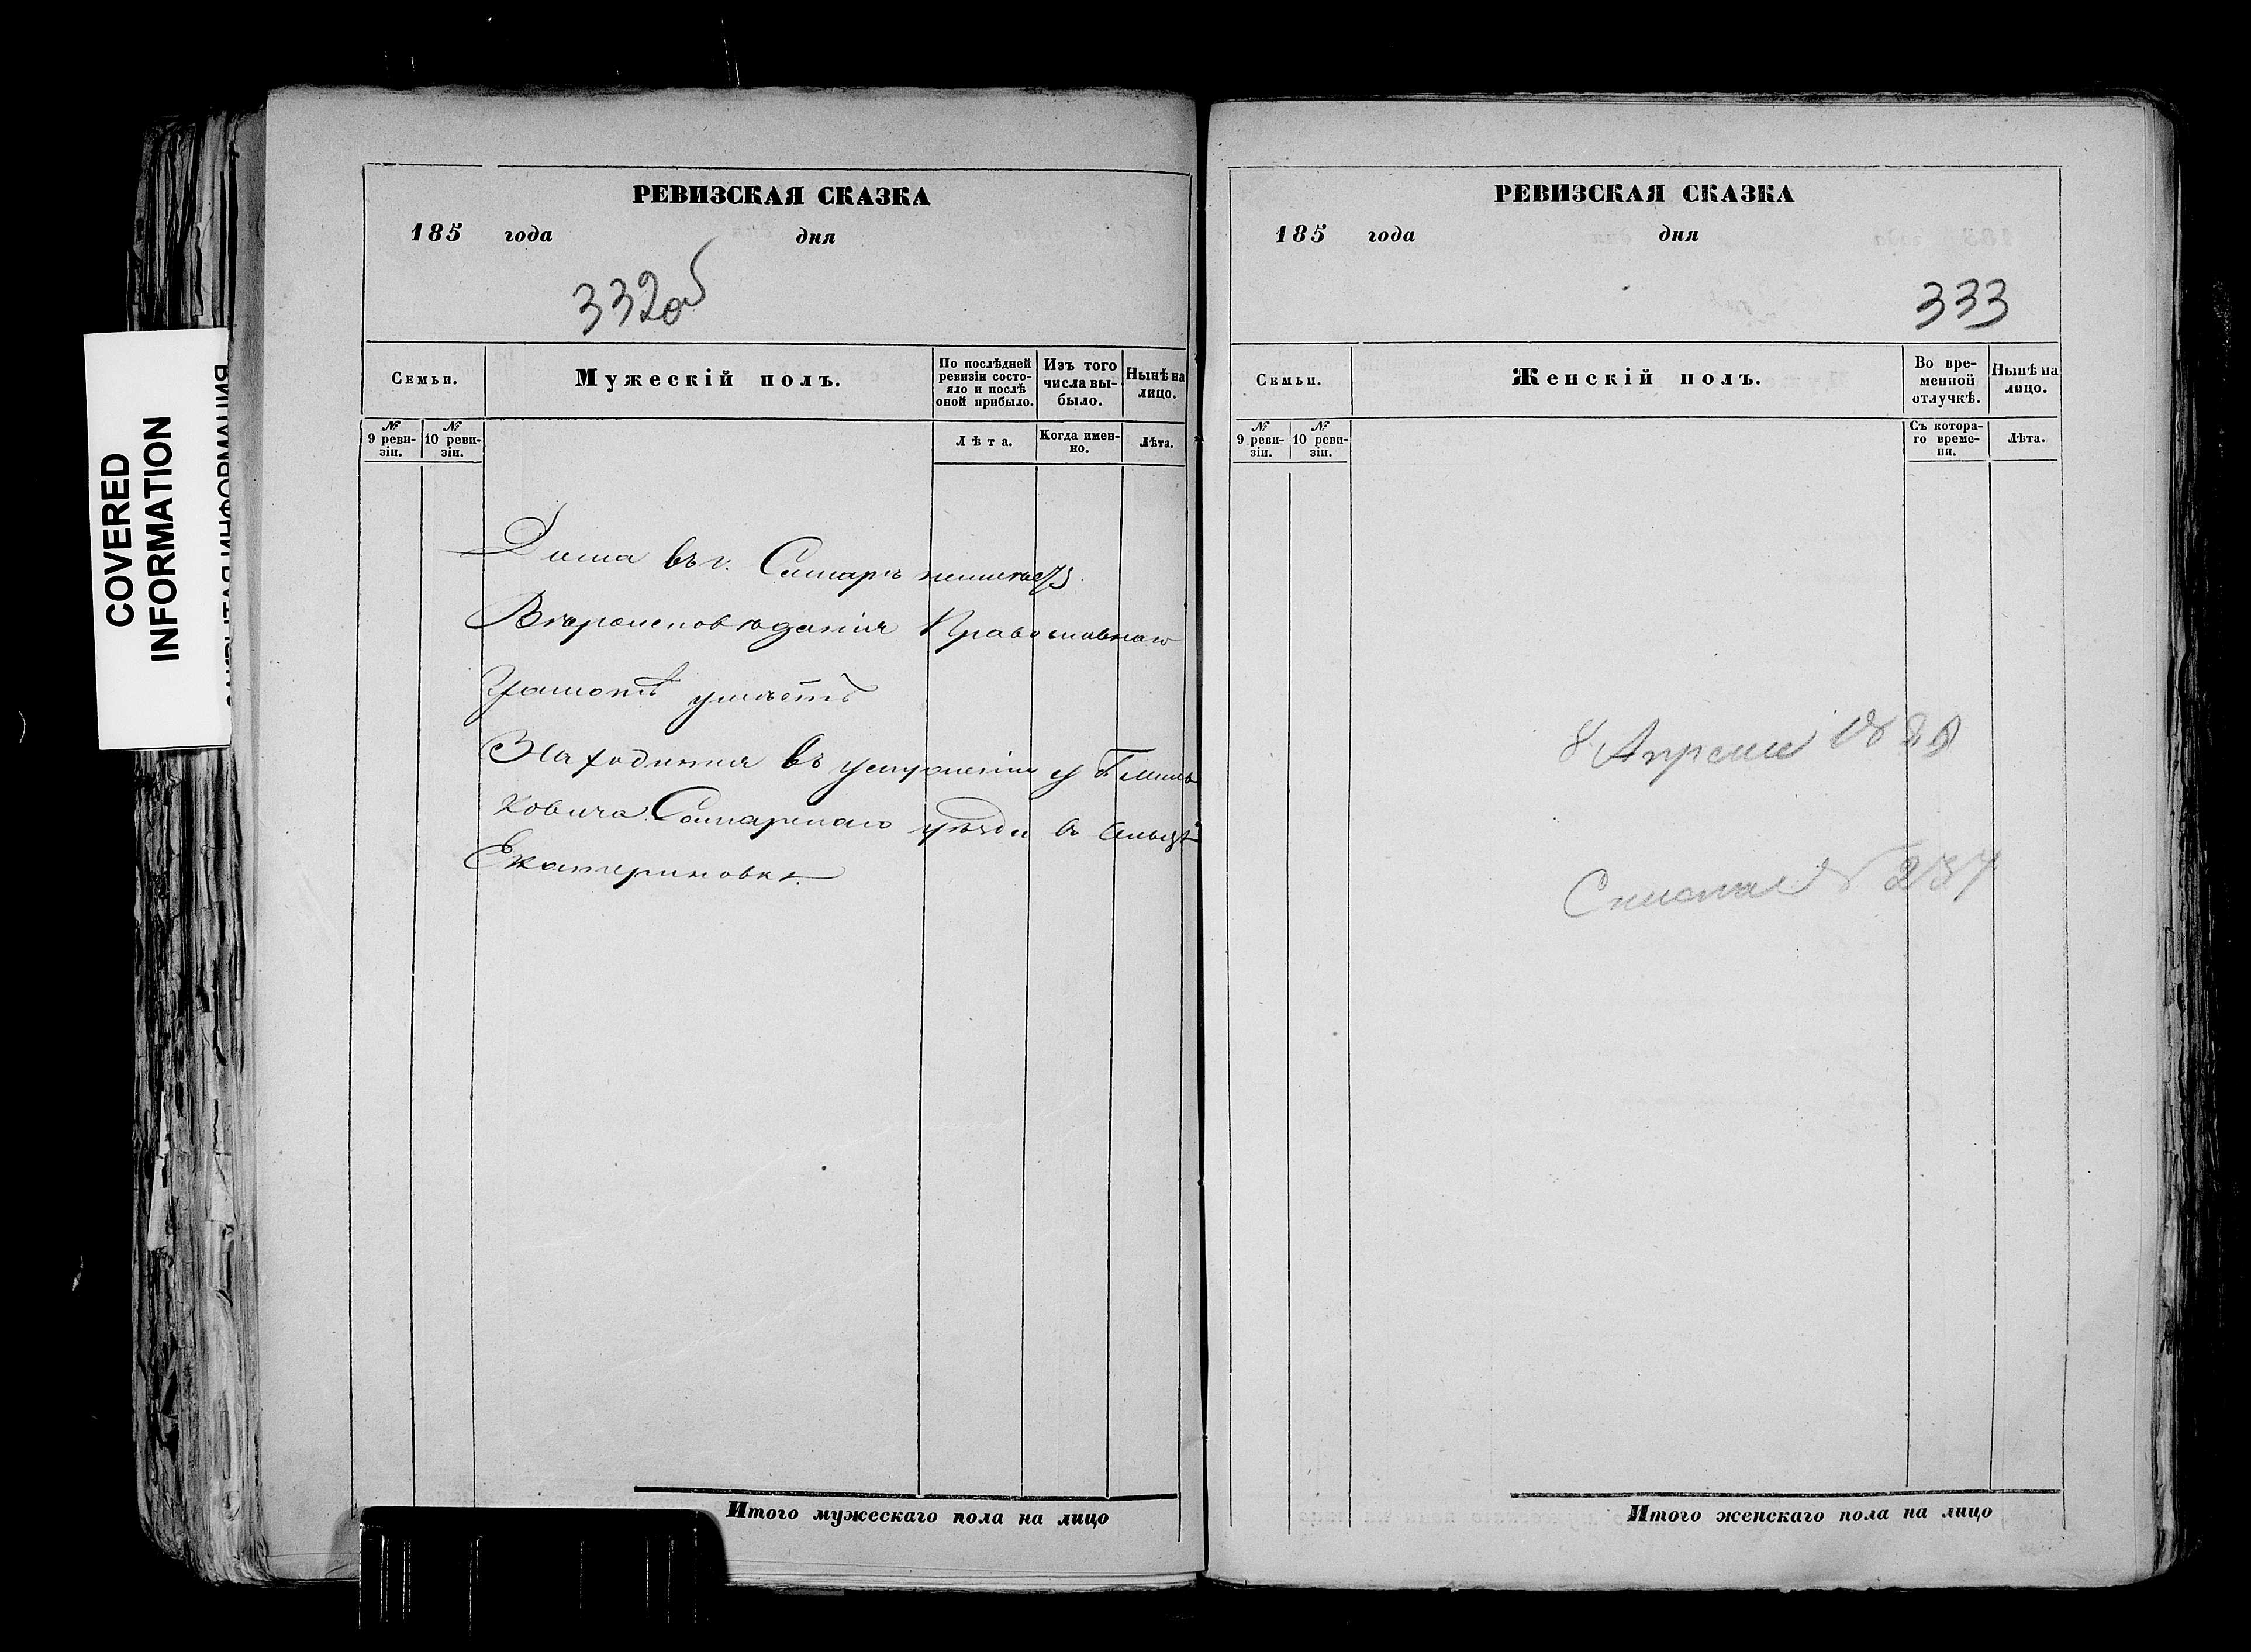 COVERED
INFORMATION
РЕВИЗСКАЯ СКАЗКА
185 года дня
332об
Семьи.
Мужескій полъ.
По послѣдней ревизіи состо-яло и послѣ оной прибыло.
Изъ того числа вы-было.
Нынѣ на лицо.
№ 9 реви-зіи.
№ 10 реви-зіи.
Лѣта.
Когда имен-но.
Лѣта.
Дома въ г. Самарѣ неимѣетъ.
Вѣроисповѣданія Православнаго
Грамотѣ умѣетъ
Находится въ услуженіи у
ковича Самарскаго уѣзда въ сельцѣ
Екатериновкѣ.
Итого мужескаго пола на лицо
РЕВИЗСКАЯ СКАЗКА
185 года дня
333
Семьи.
Женскій полъ.
Во вре-менной отлучкѣ.
Нынѣ на лицо.
№ 9 реви-зіи.
№ 10 реви-зіи.
Съ котора-го време-ни.
Лѣта.
8 Апреля
Итого женскаго пола на лицо